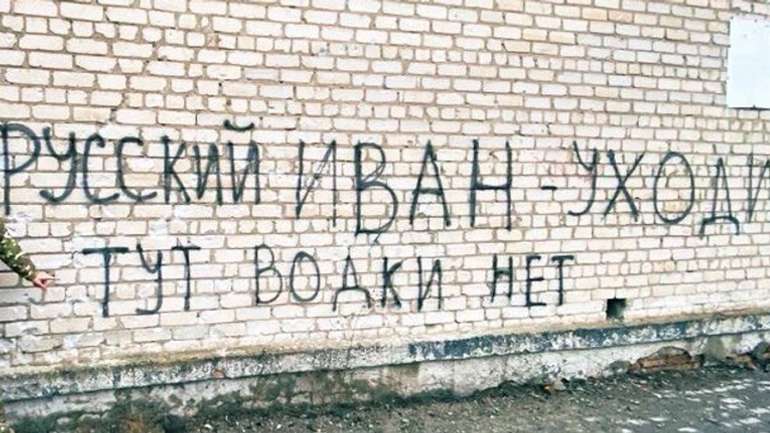 РУССКИЙ ИВАН - УХОДИ
ТУТ ВОДКИ НЕТ